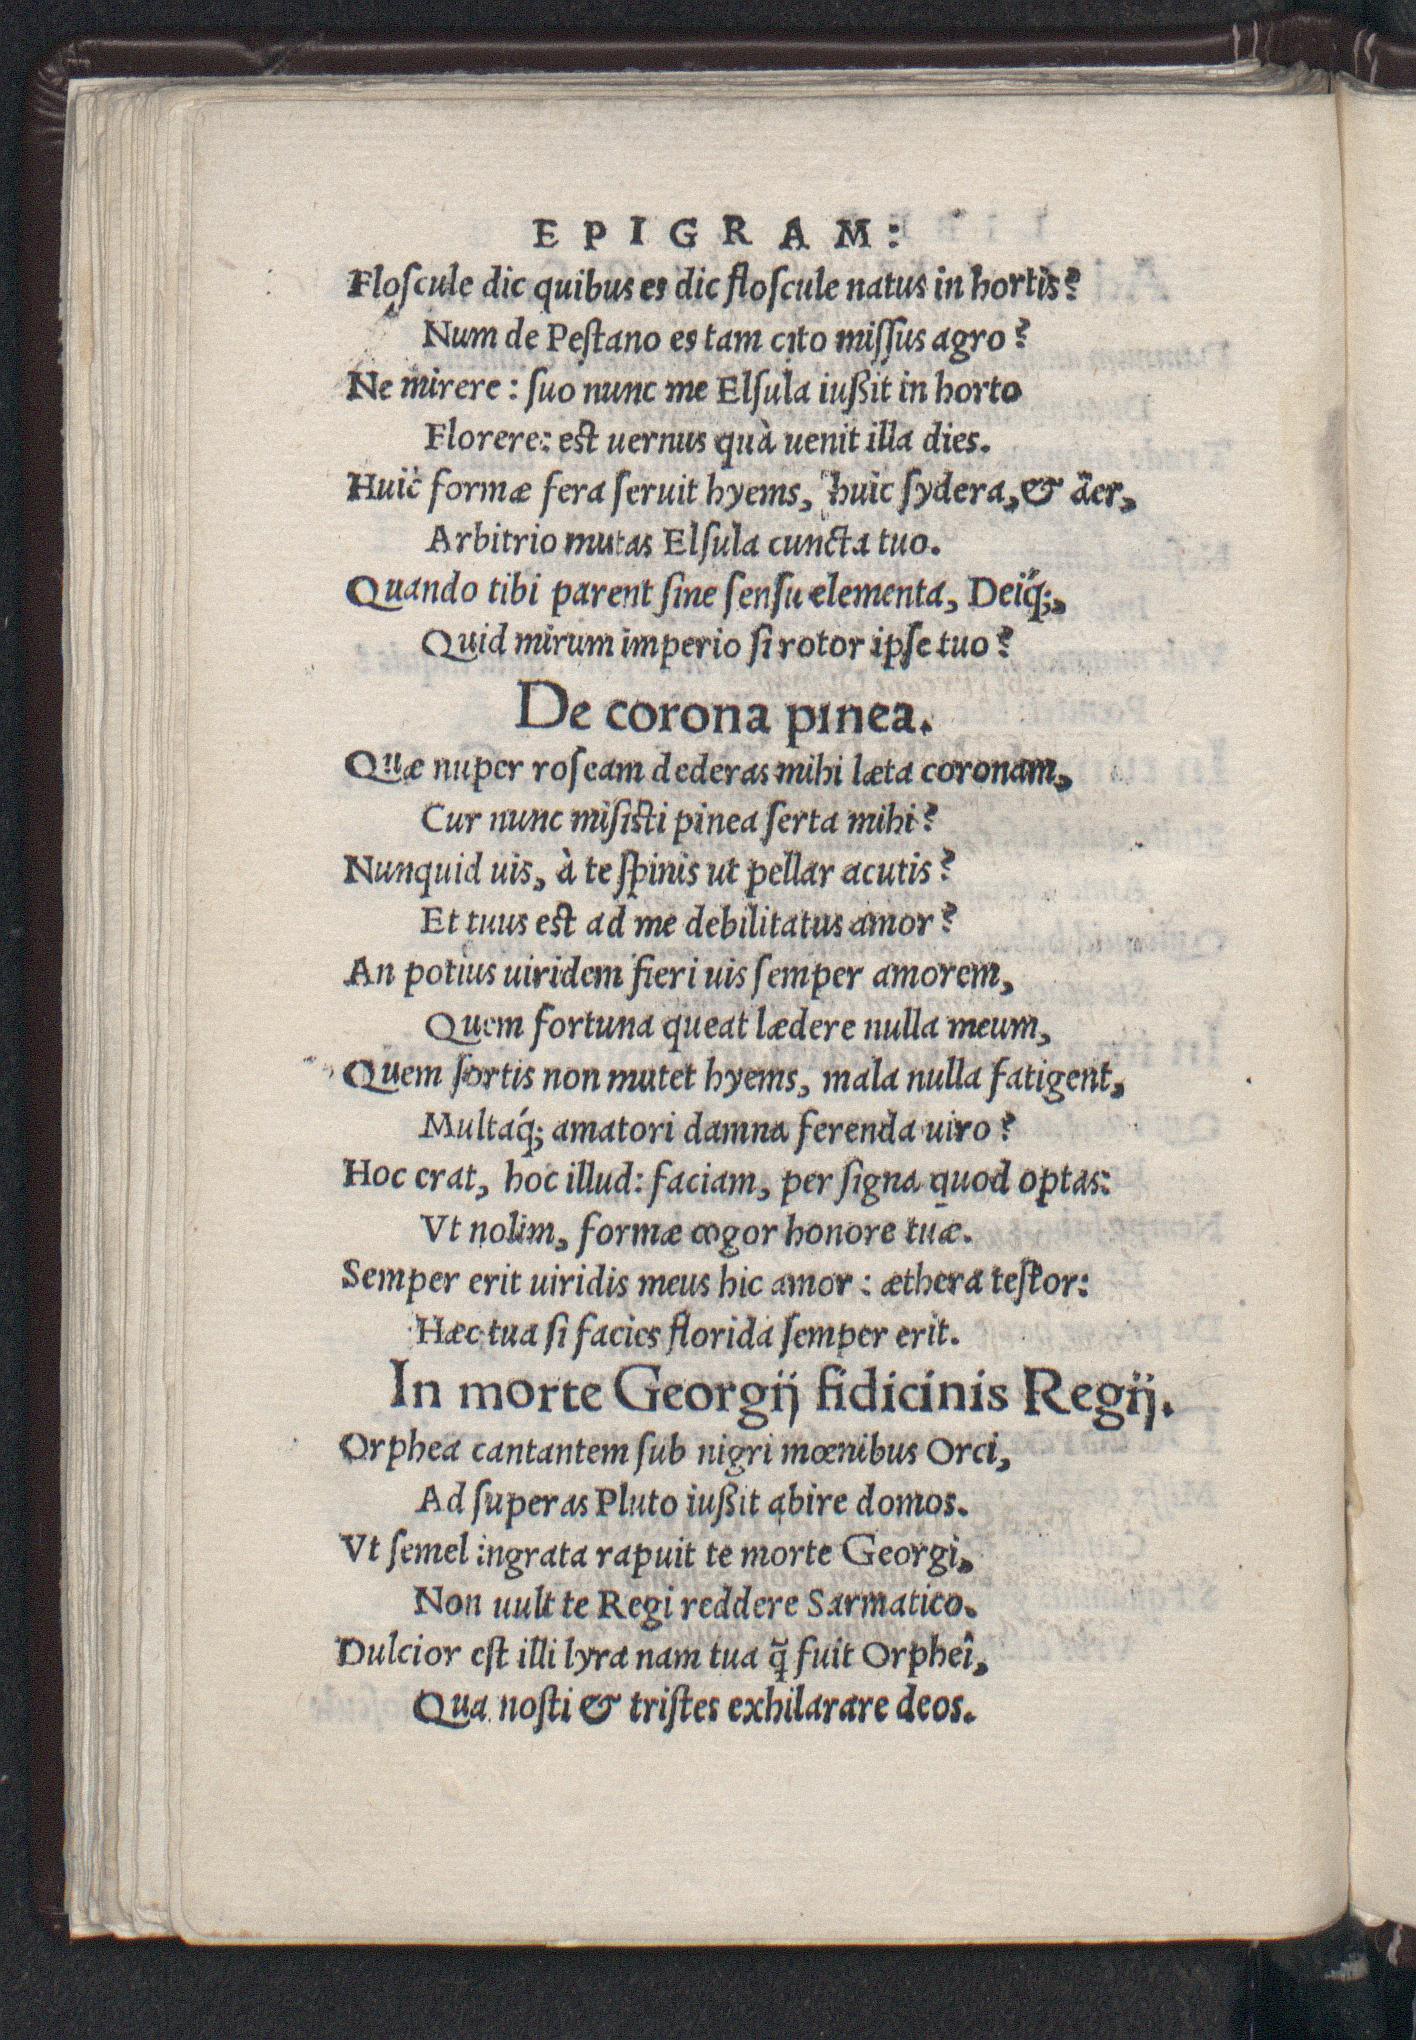 EPIGRAM:
Floſcule dic quibus es dic floſcule natus in hortis?
Num de Peſtano es tam cito miſſus agro?
Ne mirere: ſuo nunc me Elſula iußit in horto
Florere: est uernus quà uenit illa dies.
Huic formæ fera ſeruit hyems, huic ſydera, & äer,
Arbitrio mutas Elſula cuncta tuo.
Quando tibi parent ſine ſenſu elementa, Deiq́;,
Quid mirum imperio ſi rotor ipſe tuo?
De corona pinea.
Quæ nuper roſeam dederas mihi læta coronam,
Cur nunc miſisti pinea ſerta mihi?
Nunquid uis, à te ſpinis ut pellar acutis?
Et tuus est ad me debilitatus amor?
An potius uiridem fieri uis ſemper amorem,
Quem fortuna queat lædere nulla meum,
Quem fortis non mutet hyems, mala nulla fatigent,
Multaq́; amatori damna ferenda uiro?
Hoc erat, hoc illud: faciam, per ſigna quod optas:
Vt nolim, formæ cogor honore tuæ.
Semper erit uiridis meus hic amor: æthera teſtor:
Hæc tua ſi facies florida ſemper erit.
In morte Georgij fidicinis Regij.
Orphea cantantem ſub nigri mœnibus Orci,
Ad ſuperas Pluto iußit abire domos.
Vt ſemel ingrata rapuit te morte Georgi,
Non uult te Regi reddere Sarmatico.
Dulcior eſt illi lyra nam tua q̃ fuit Orpheî,
Qua noſti & triſtes exhilarare deos.